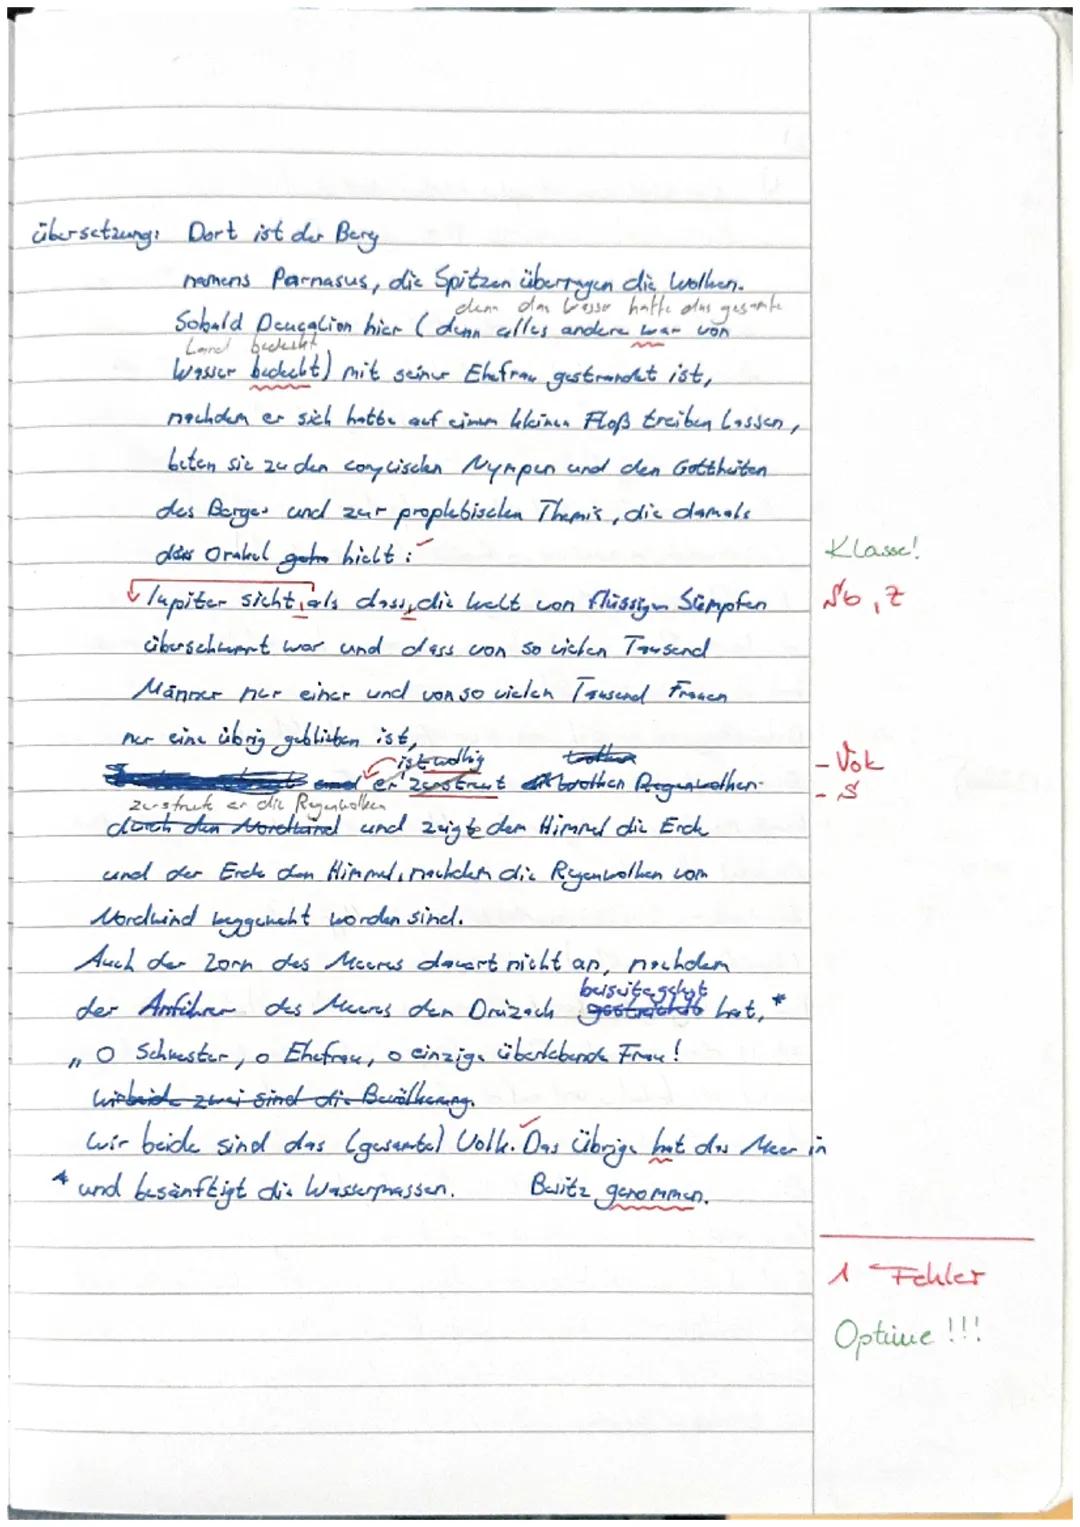 übersetzung: Dort ist der Berg
namens Parnasus, die Spitzen überragen die Wolken.
denn das Wasser hatte das gesamte
Sobald Deucalion hier (denn alles andere war von
Land bedeckt
Wasser bedeckt) mit seiner Ehefrau gestrandet ist,
nachdem er sich hatte auf einem kleinen Floß treiben lassen,
beten sie zu den corycischen Nympen und den Gottheiten
des Berges und zur prophetischen Themis, die damals
das Orakel hielt:
Klasse!
Iupiter sieht, als dass, die Welt von flüssigen Sümpfen
Sb, Z
überschwemmt war und dass von so vielen Tausend
Männer nur einer und von so vielen Tausend Frauen
nur eine übrig geblieben ist,
ist wollig
- Vok
und er zerstreut Regenwolken
- S
zerstreute er die Regenwolken
durch den Nordwind und zeigte dem Himmel die Erde
und der Erde den Himmel, nachdem die Regenwolken vom
Nordwind weggeweht worden sind.
Auch der Zorn des Meeres dauert nicht an, nachdem
beiseitegelegt
der Anführer des Meeres den Dreizack hat, *
„O Schwester, o Ehefrau, o einzige überlebende Frau!
wir beide zwei sind die Bevölkerung.
wir beide sind das (gesamte) Volk. Das Übrige hat das Meer in
* und besänftigt die Wassermassen. Besitz genommen.
1 Fehler
Optime !!!